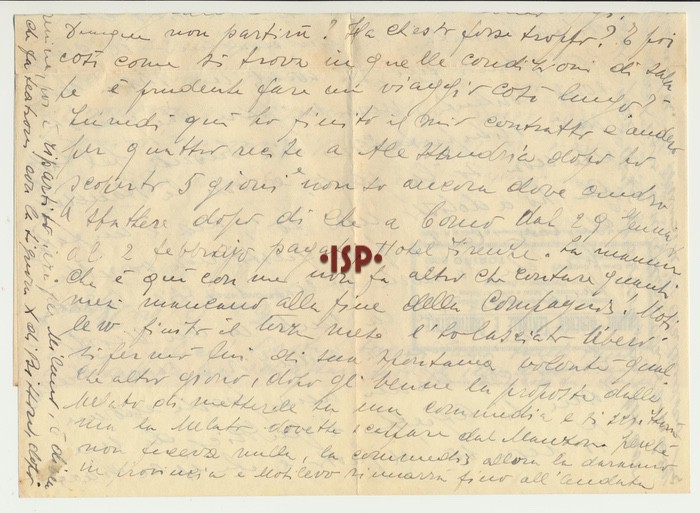 Dunque non partirà? Ha chiesto forse troppo? E poi
così come si trova in quelle condizioni di salu
te è prudente fare un viaggio così lungo?
Lunedì qui ho finito il mio contratto e andrò
per quattro recite a Alessandria dopo ho
scoperto 5 giorni e non so ancora dove andrò
a sbattere dopo di che a Como dal 29 Gennaio
al 2 febbraio Hotel Firenze. La mamma
che è qui con me non fa altro che contare quanti
mesi mancano alla fine della Compagnia! Moti
lew finito il terzo mese l'ho lasciato libero.
si fermò lui di sua spontanea volontà qual
che altro giorno, dopo gli venne la proposta dalla
Melato di metterle su una commedia e si
ma la Melato dovette dal Manzoni perchè
non faceva nulla, la commedia allora la daranno
in provincia e Motilew rimarrà fino all'andata
ripartito per Milano, è
che fa con la signora X di
·ISP·